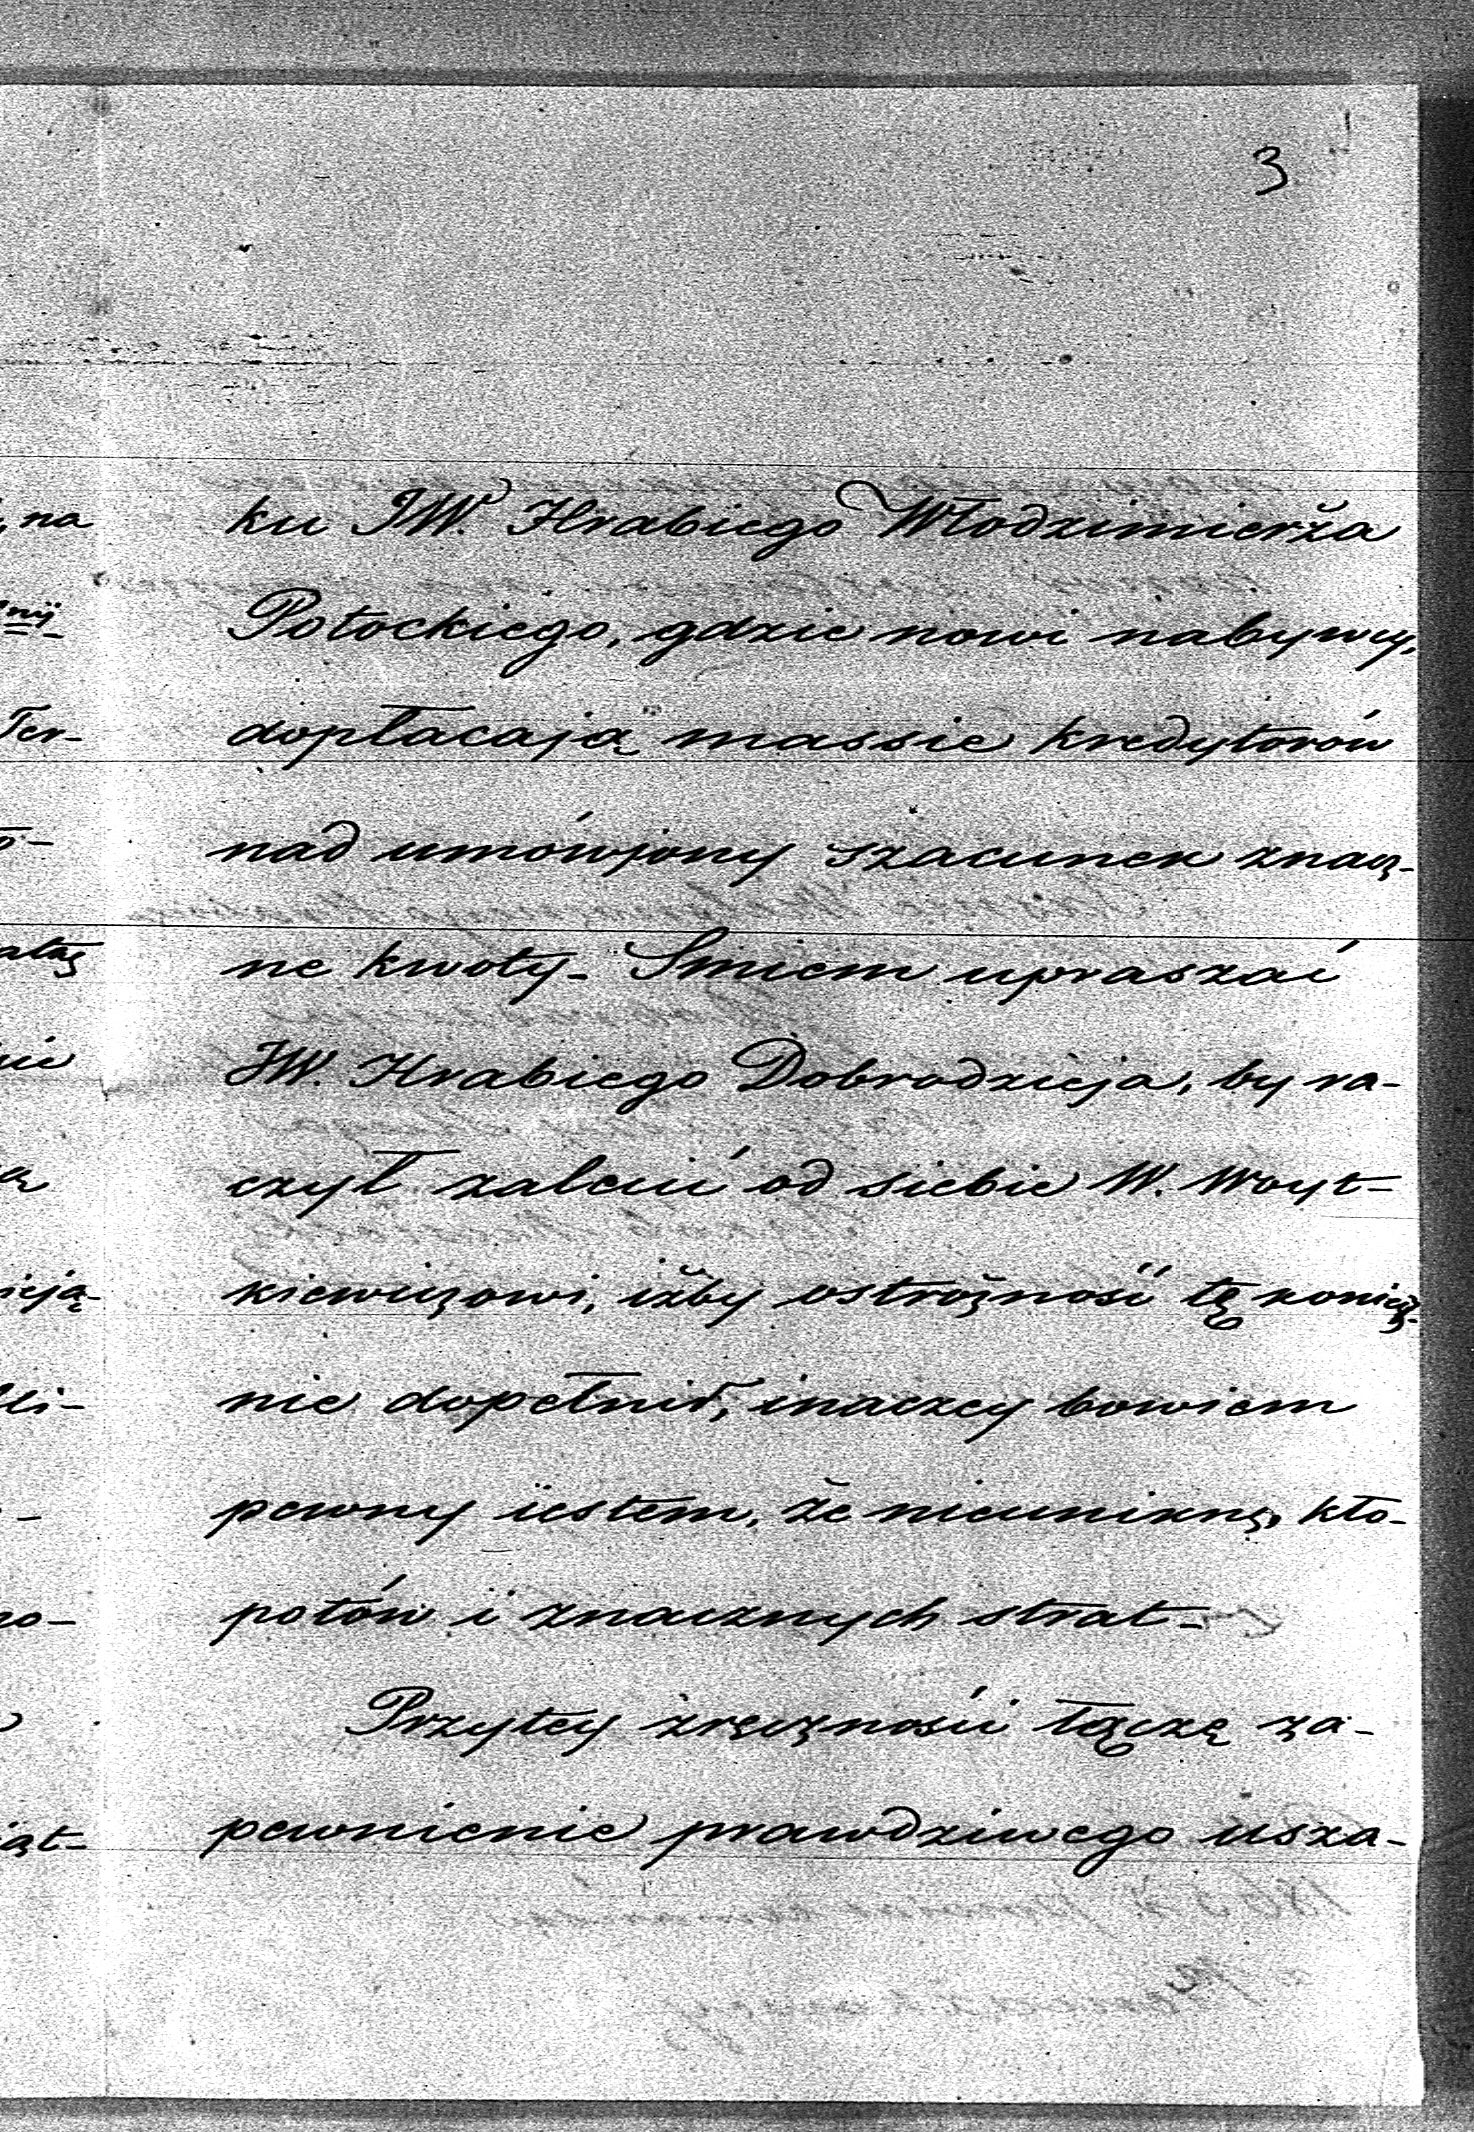 3
ku JW. Hrabiego Włodzimierża
Potockiego, gdzie nowi nabywcy,
dopłacają massie kredytorów
nad umówjony szacunek znacz-
ne kwoty - Smiem upraszać
JW. Hrabiego Dobrodzieja, by ra-
czył zalecić od siebie W. Woyt-
kiewiczowi, iżby ostrożność tę koniecz-
nie dopełnił, inaczey bowiem
pewny iestem, że nieuniknę, kło-
potów i znacznych strat -
Przytey zręczności łączę za-
pewnienie prawdziwego usza-